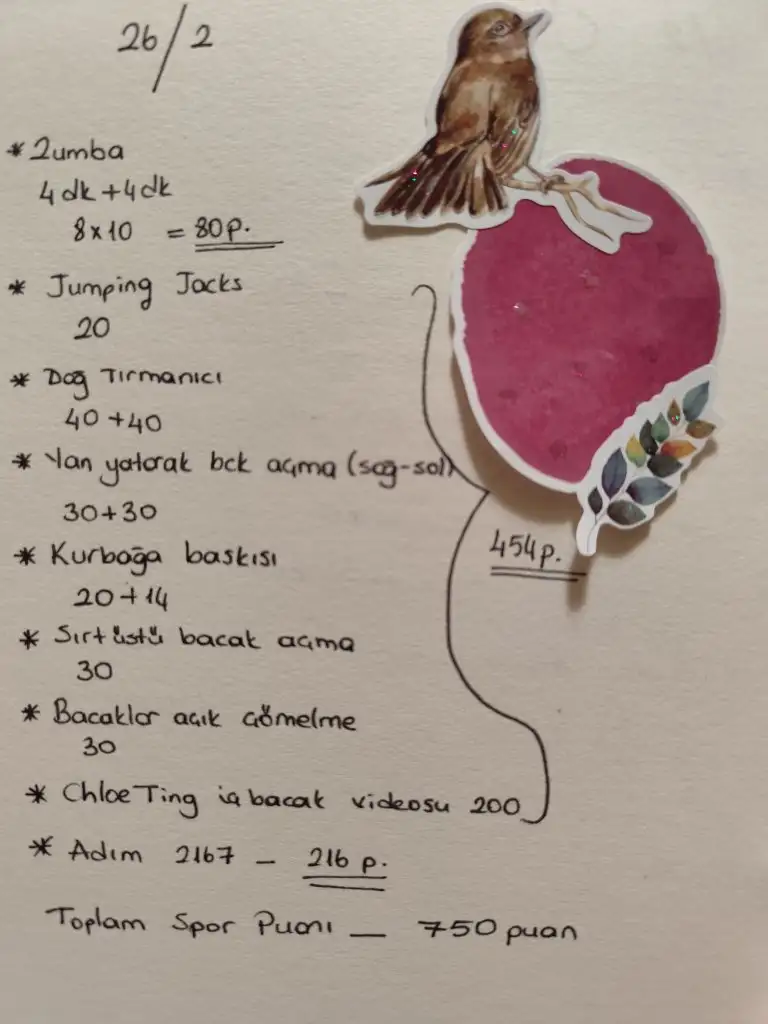 26/2
* Zumba
4 dk + 4 dk
8 x 10 = 80 p.
* Jumping Jacks
20
* Dağ Tırmanıcı
40 + 40
* Yan yatarak bck açma (sağ-sol)
30 + 30
* Kurbağa baskısı
20 + 14
454 p.
* Sırtüstü bacak açma
30
* Bacaklar açık çömelme
30
* Chloe Ting iç bacak videosu 200
* Adım 2167 - 216 p.
Toplam Spor Puanı - 750 puan